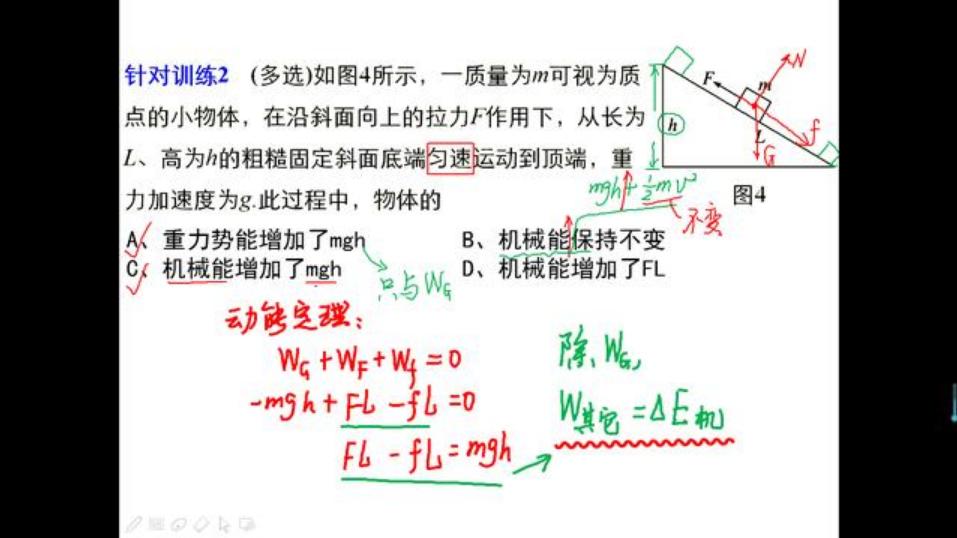 针对训练2 (多选)如图4所示，一质量为m可视为质
点的小物体，在沿斜面向上的拉力F作用下，从长为
L、高为h的粗糙固定斜面底端匀速运动到顶端，重
力加速度为g.此过程中，物体的
A、重力势能增加了mgh
B、机械能保持不变
C、机械能增加了mgh
D、机械能增加了FL
F
m
N
f
L
G
h
图4
mgh+½mv²
不变
只与WG
动能定理：
WG+WF+Wf=0
-mgh+FL-fL=0
FL-fL=mgh
除WG,
W其它=ΔE机